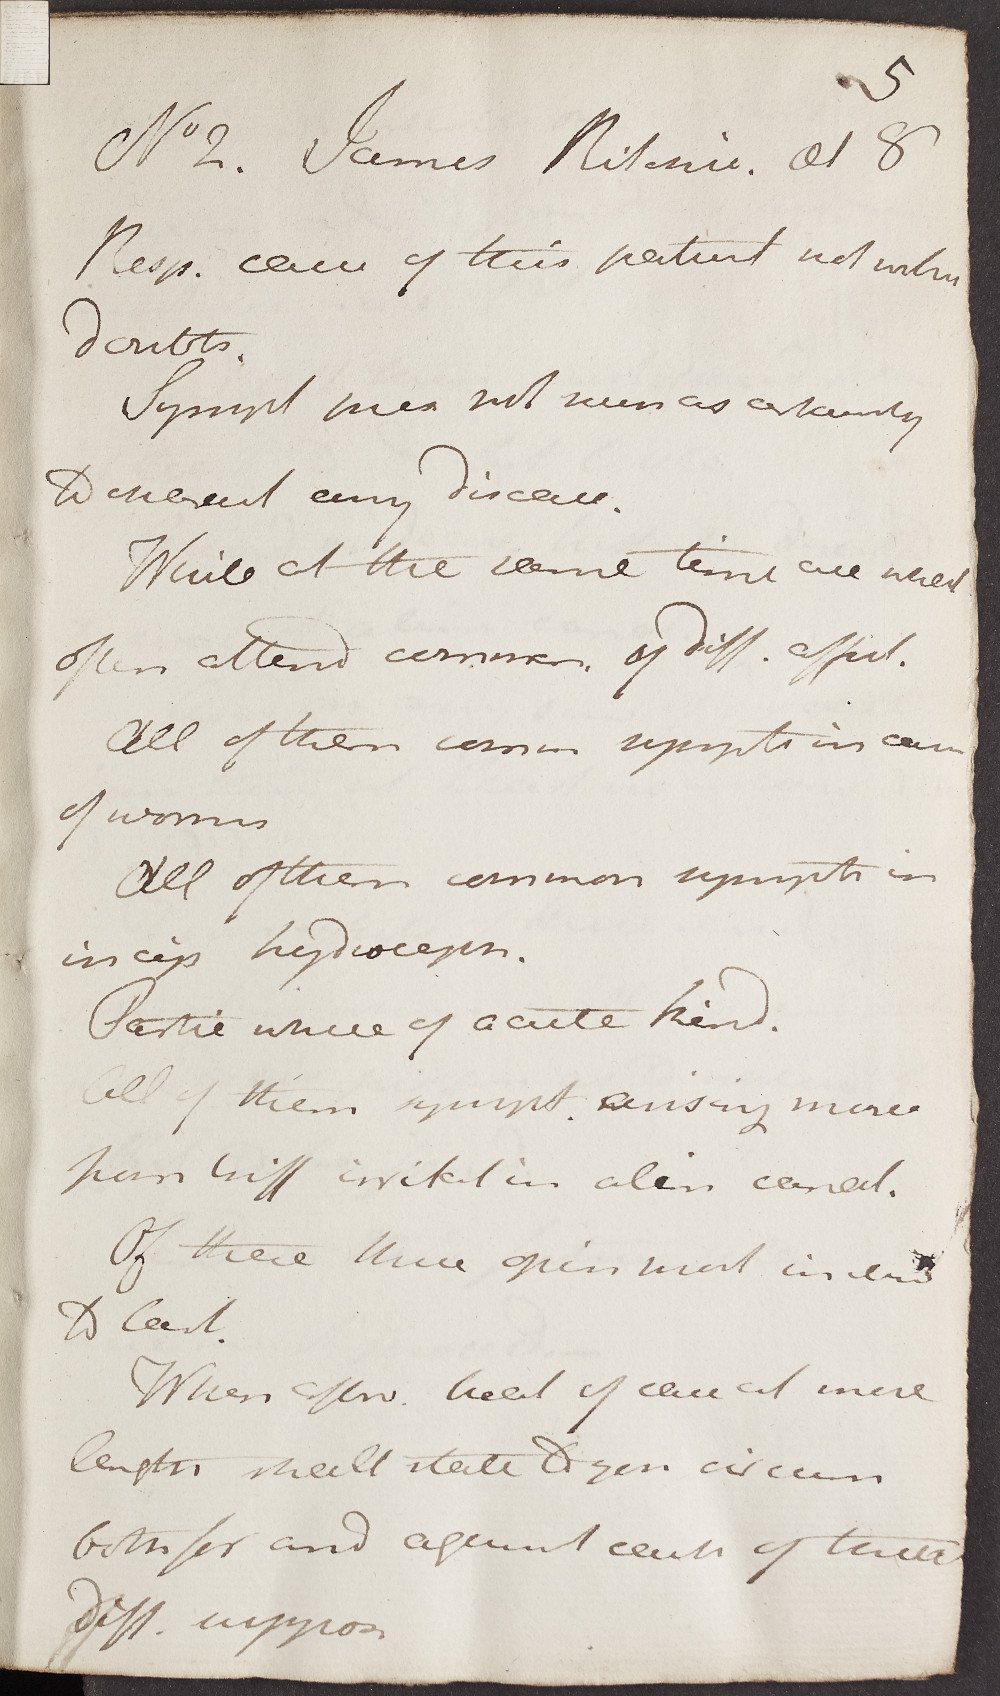 5
No 2. James Ritchie. Æt 8
Resp. case of this patient not witht
doubts.
Sympt such as not even as certainly
to represent any disease.
While at the same time are such
often attend common. of diff. affect.
All of them common sympts in case
of worms
All of them common sympts in
incip hydroceph.
Partic where of acute kind.
All of them sympt. arising more
from diff irritat in alim canal.
Of these three opin most inclind
to last.
When afterw. treat of case at more
length shall state to you circum
both for and against each of these
diff. suppos